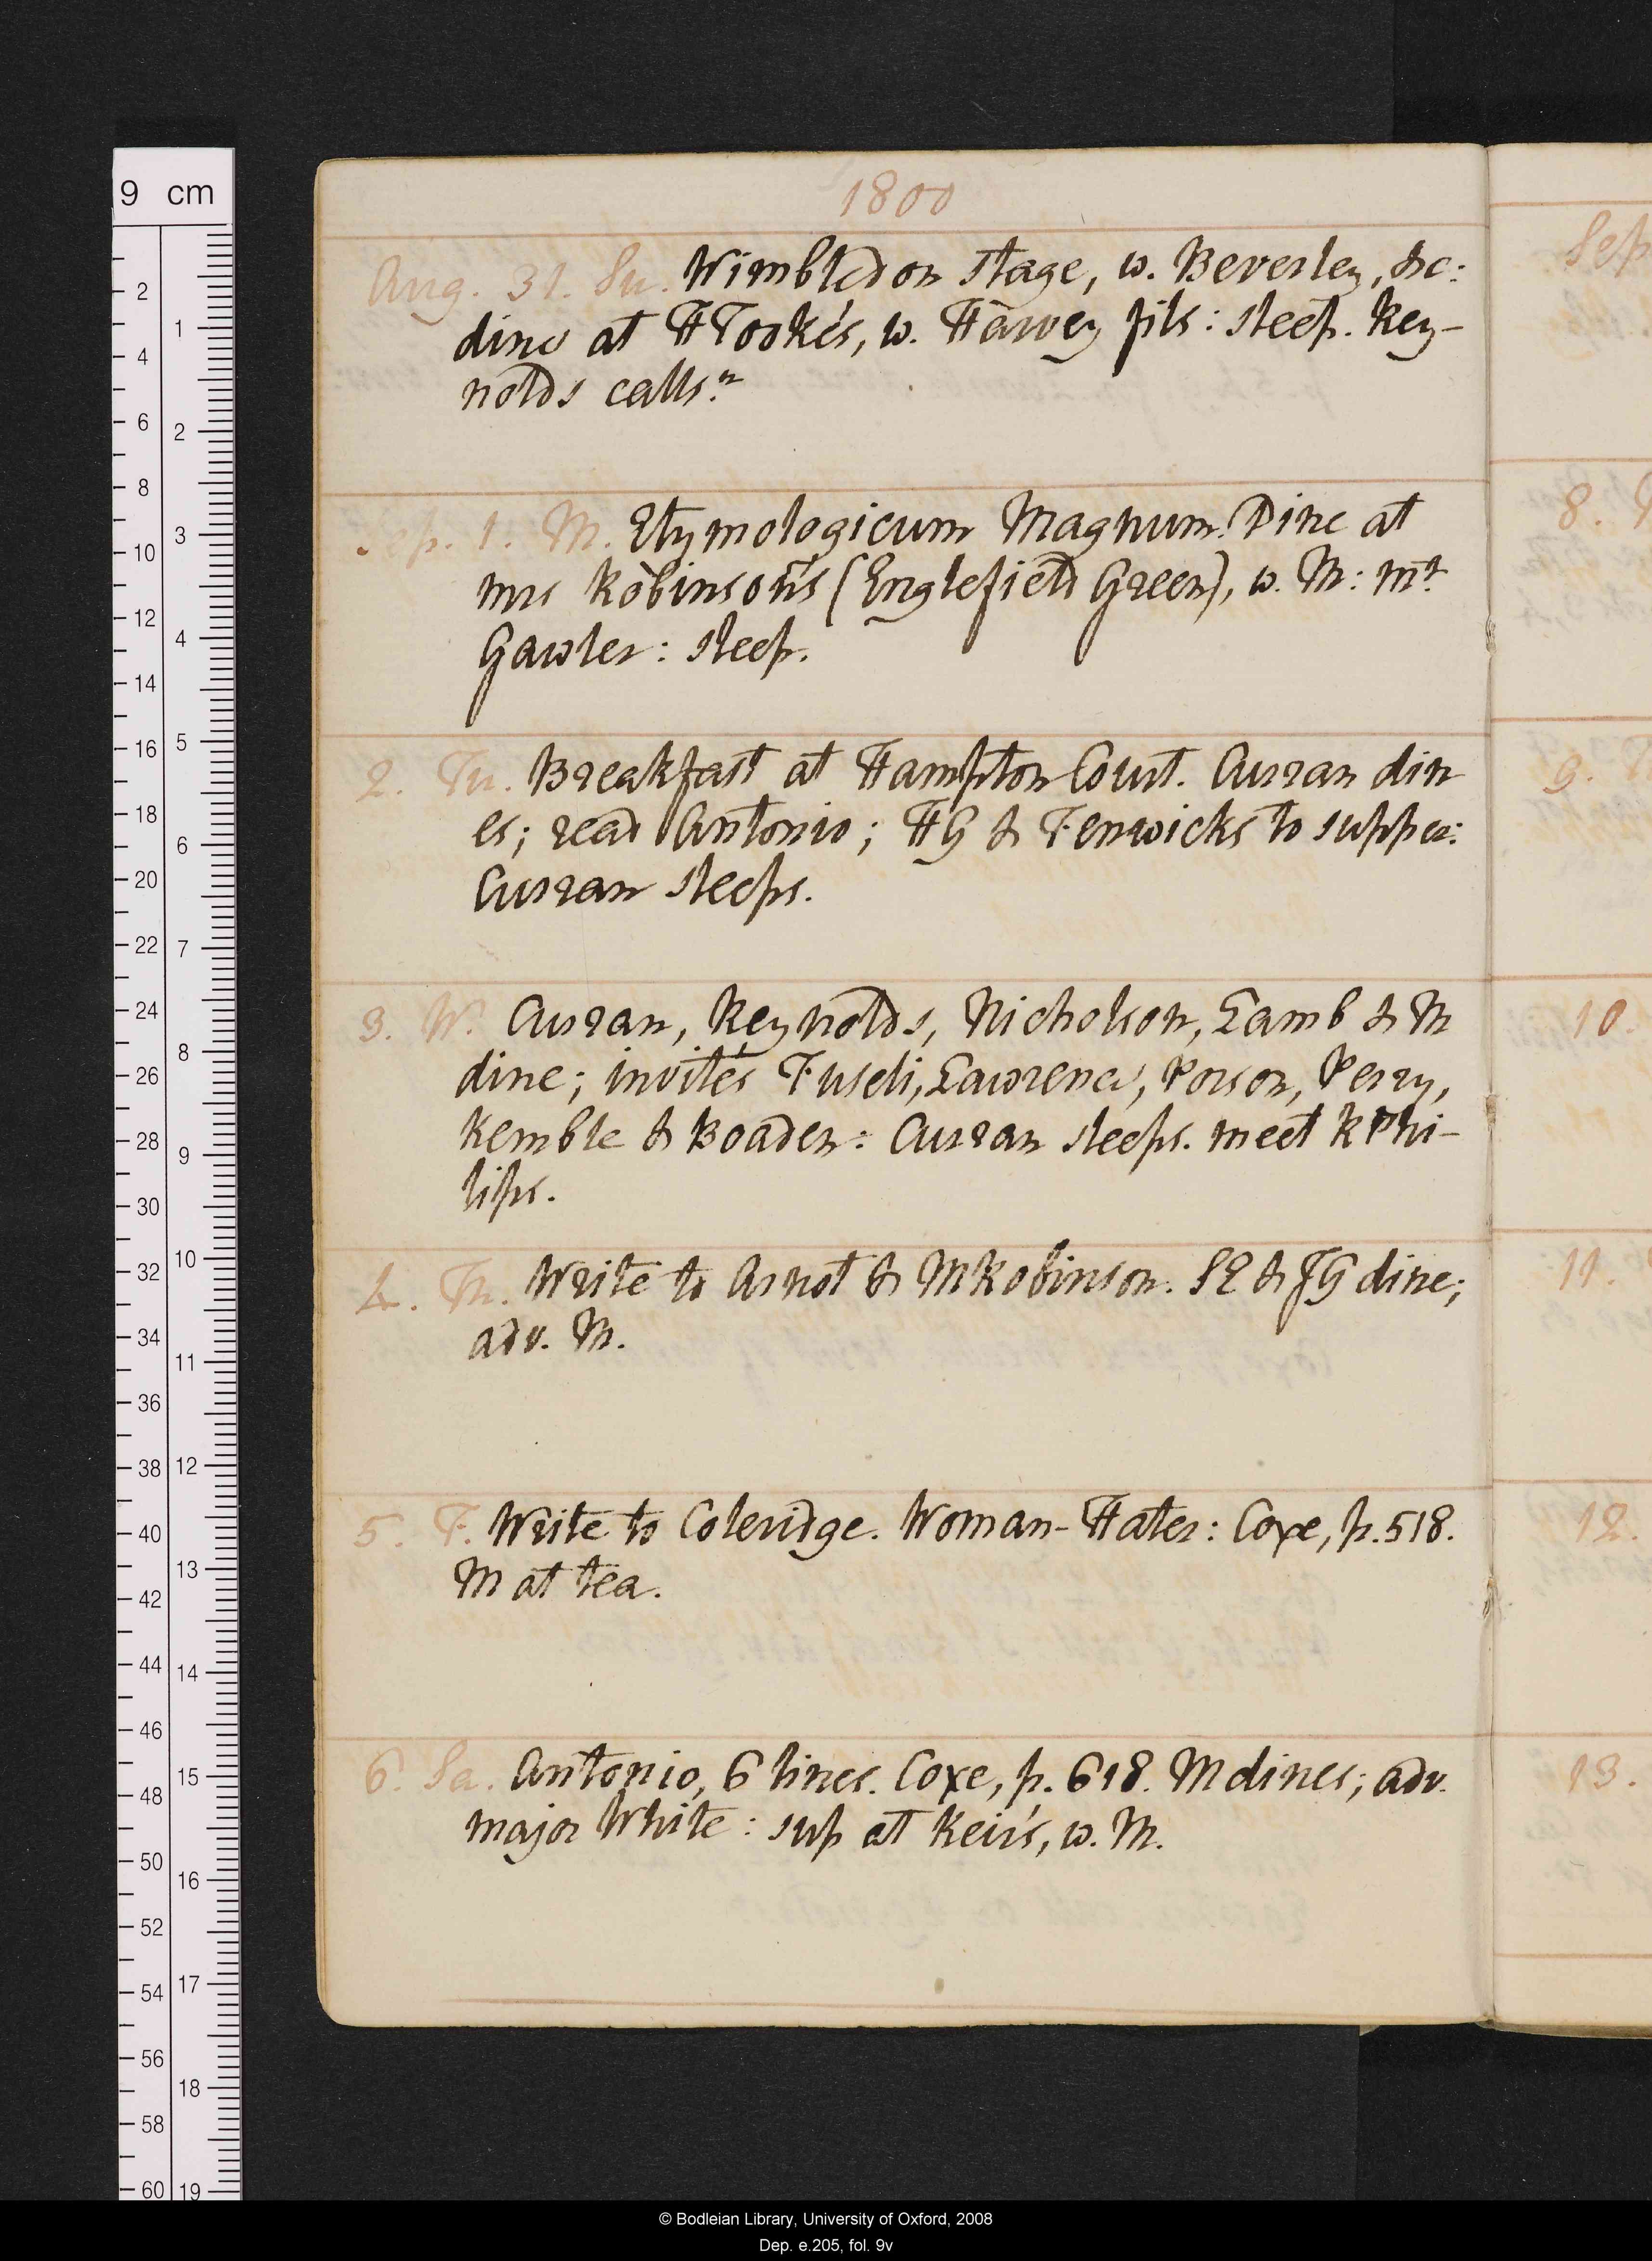 9 cm
1800
Aug. 31. Su. Wimbledon stage, w. Beverley, &c:
dine at HTooke's, w. Harvey fils: sleep. Rey-
nolds calls.n
Sep. 1. M. Etymologicum Magnum. Dine at
mrs Robinson's (Englefield Green), w. M: mr.
Gawler: sleep.
2. Tu. Breakfast at Hampton Court. Curran din
es; read Antonio; HG & Fenwicks to supper:
Curran sleeps.
3. W. Curran, Reynolds, Nicholson, Lamb & M
dine; invités Fuseli, Lawrence, Porson, Perry,
Kemble & Boaden: Curran sleeps. meet R Phi-
lips.
4. Th. Write to Arnot & MRobinson. SE & JG dine;
adv. M.
5. F. Write to Coleridge. Woman-Hater: Coxe, p. 518.
M at tea.
6. Sa. Antonio, 6 lines. Coxe, p. 618. M dines; adv.
major White: sup at Keir's, w. M.
Sep
8.
9.
10.
11.
12.
13.
© Bodleian Library, University of Oxford, 2008
Dep. e.205, fol. 9v